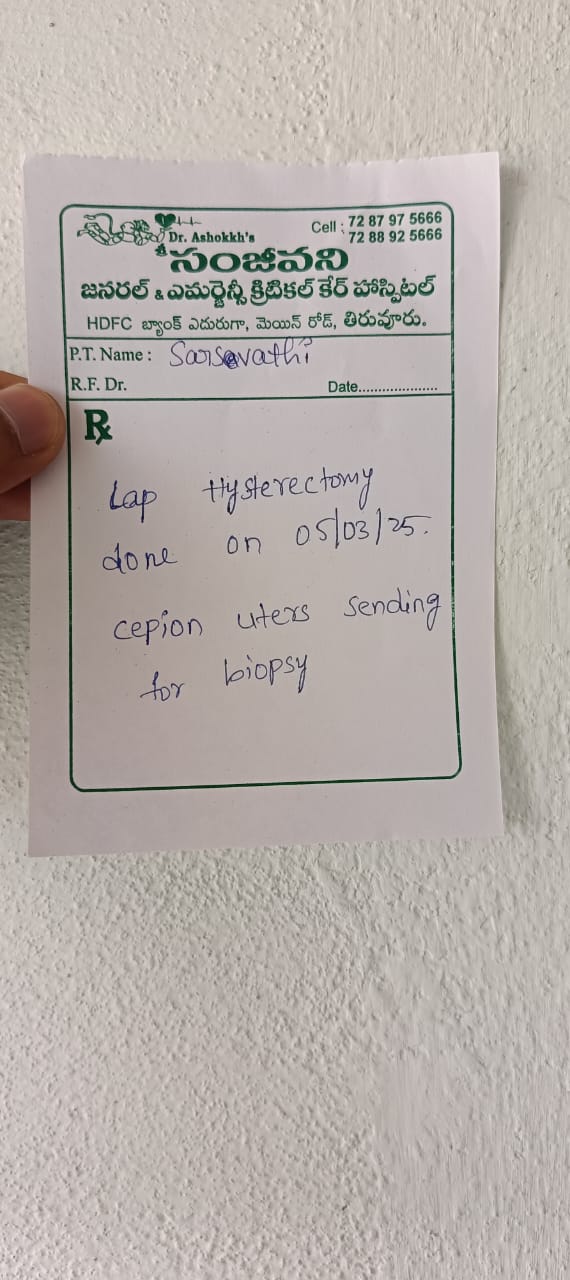 Dr. Ashokkh's
Cell : 72 87 97 5666
72 88 92 5666
శ్రీ సంజీవని
జనరల్ & ఎమర్జెన్సీ క్రిటికల్ కేర్ హాస్పిటల్
HDFC బ్యాంక్ ఎదురుగా, మెయిన్ రోడ్, తిరువూరు.
P.T. Name : Sarsevathi
R.F. Dr. Date....................
Rx
Lap Hysterectomy
done on 05/03/25.
cepion uters sending
for biopsy